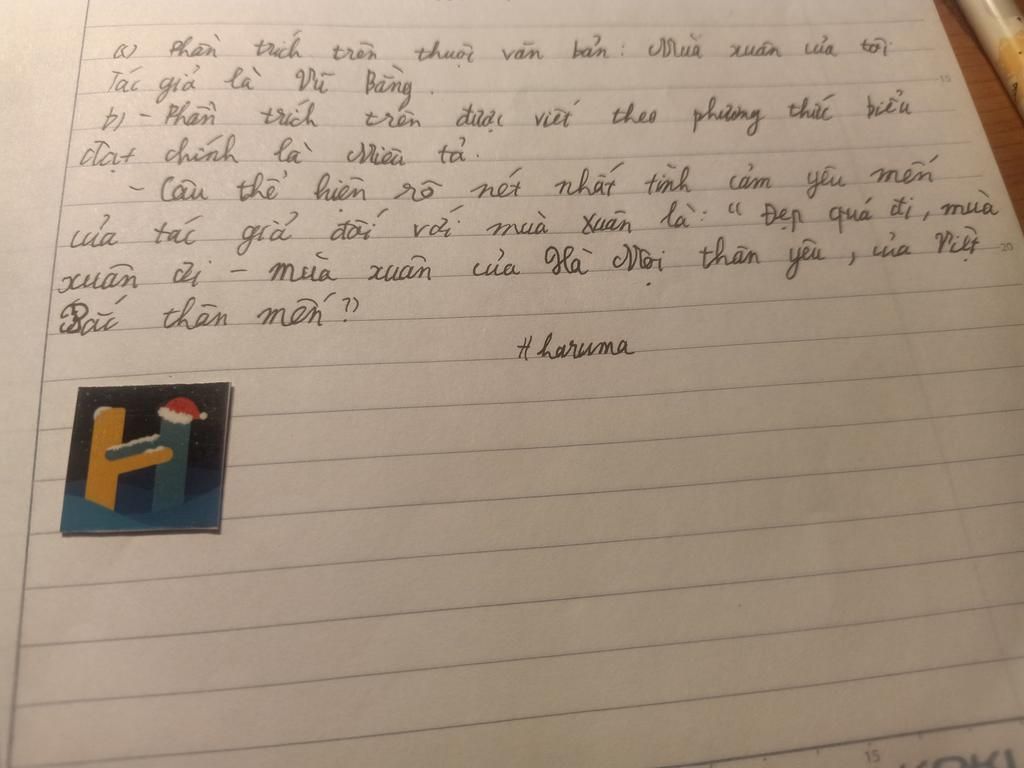 a) Phần trích trên thuộc văn bản: Mùa xuân của tôi
Tác giả là Vũ Bằng.
b) - Phần trích trên được viết theo phương thức biểu
đạt chính là Miêu tả.
- Câu thể hiện rõ nét nhất tình cảm yêu mến
của tác giả đối với mùa xuân là: "Đẹp quá đi, mùa
xuân ơi - mùa xuân của Hà Nội thân yêu, của Việt
Bắc thân mến"
# haruma
H
15
20
15